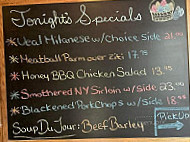 Tonight's Specials
*Veal Milanese w/choice Side 21.95
*Meatball Parm over ziti 17.95
*Honey BBQ Chicken Salad 13.95
*Smothered NY Sirloin w/side 23.95
*Blackened Pork Chops w/Side 18.95
Soup Du Jour: Beef Barley
Pick Up